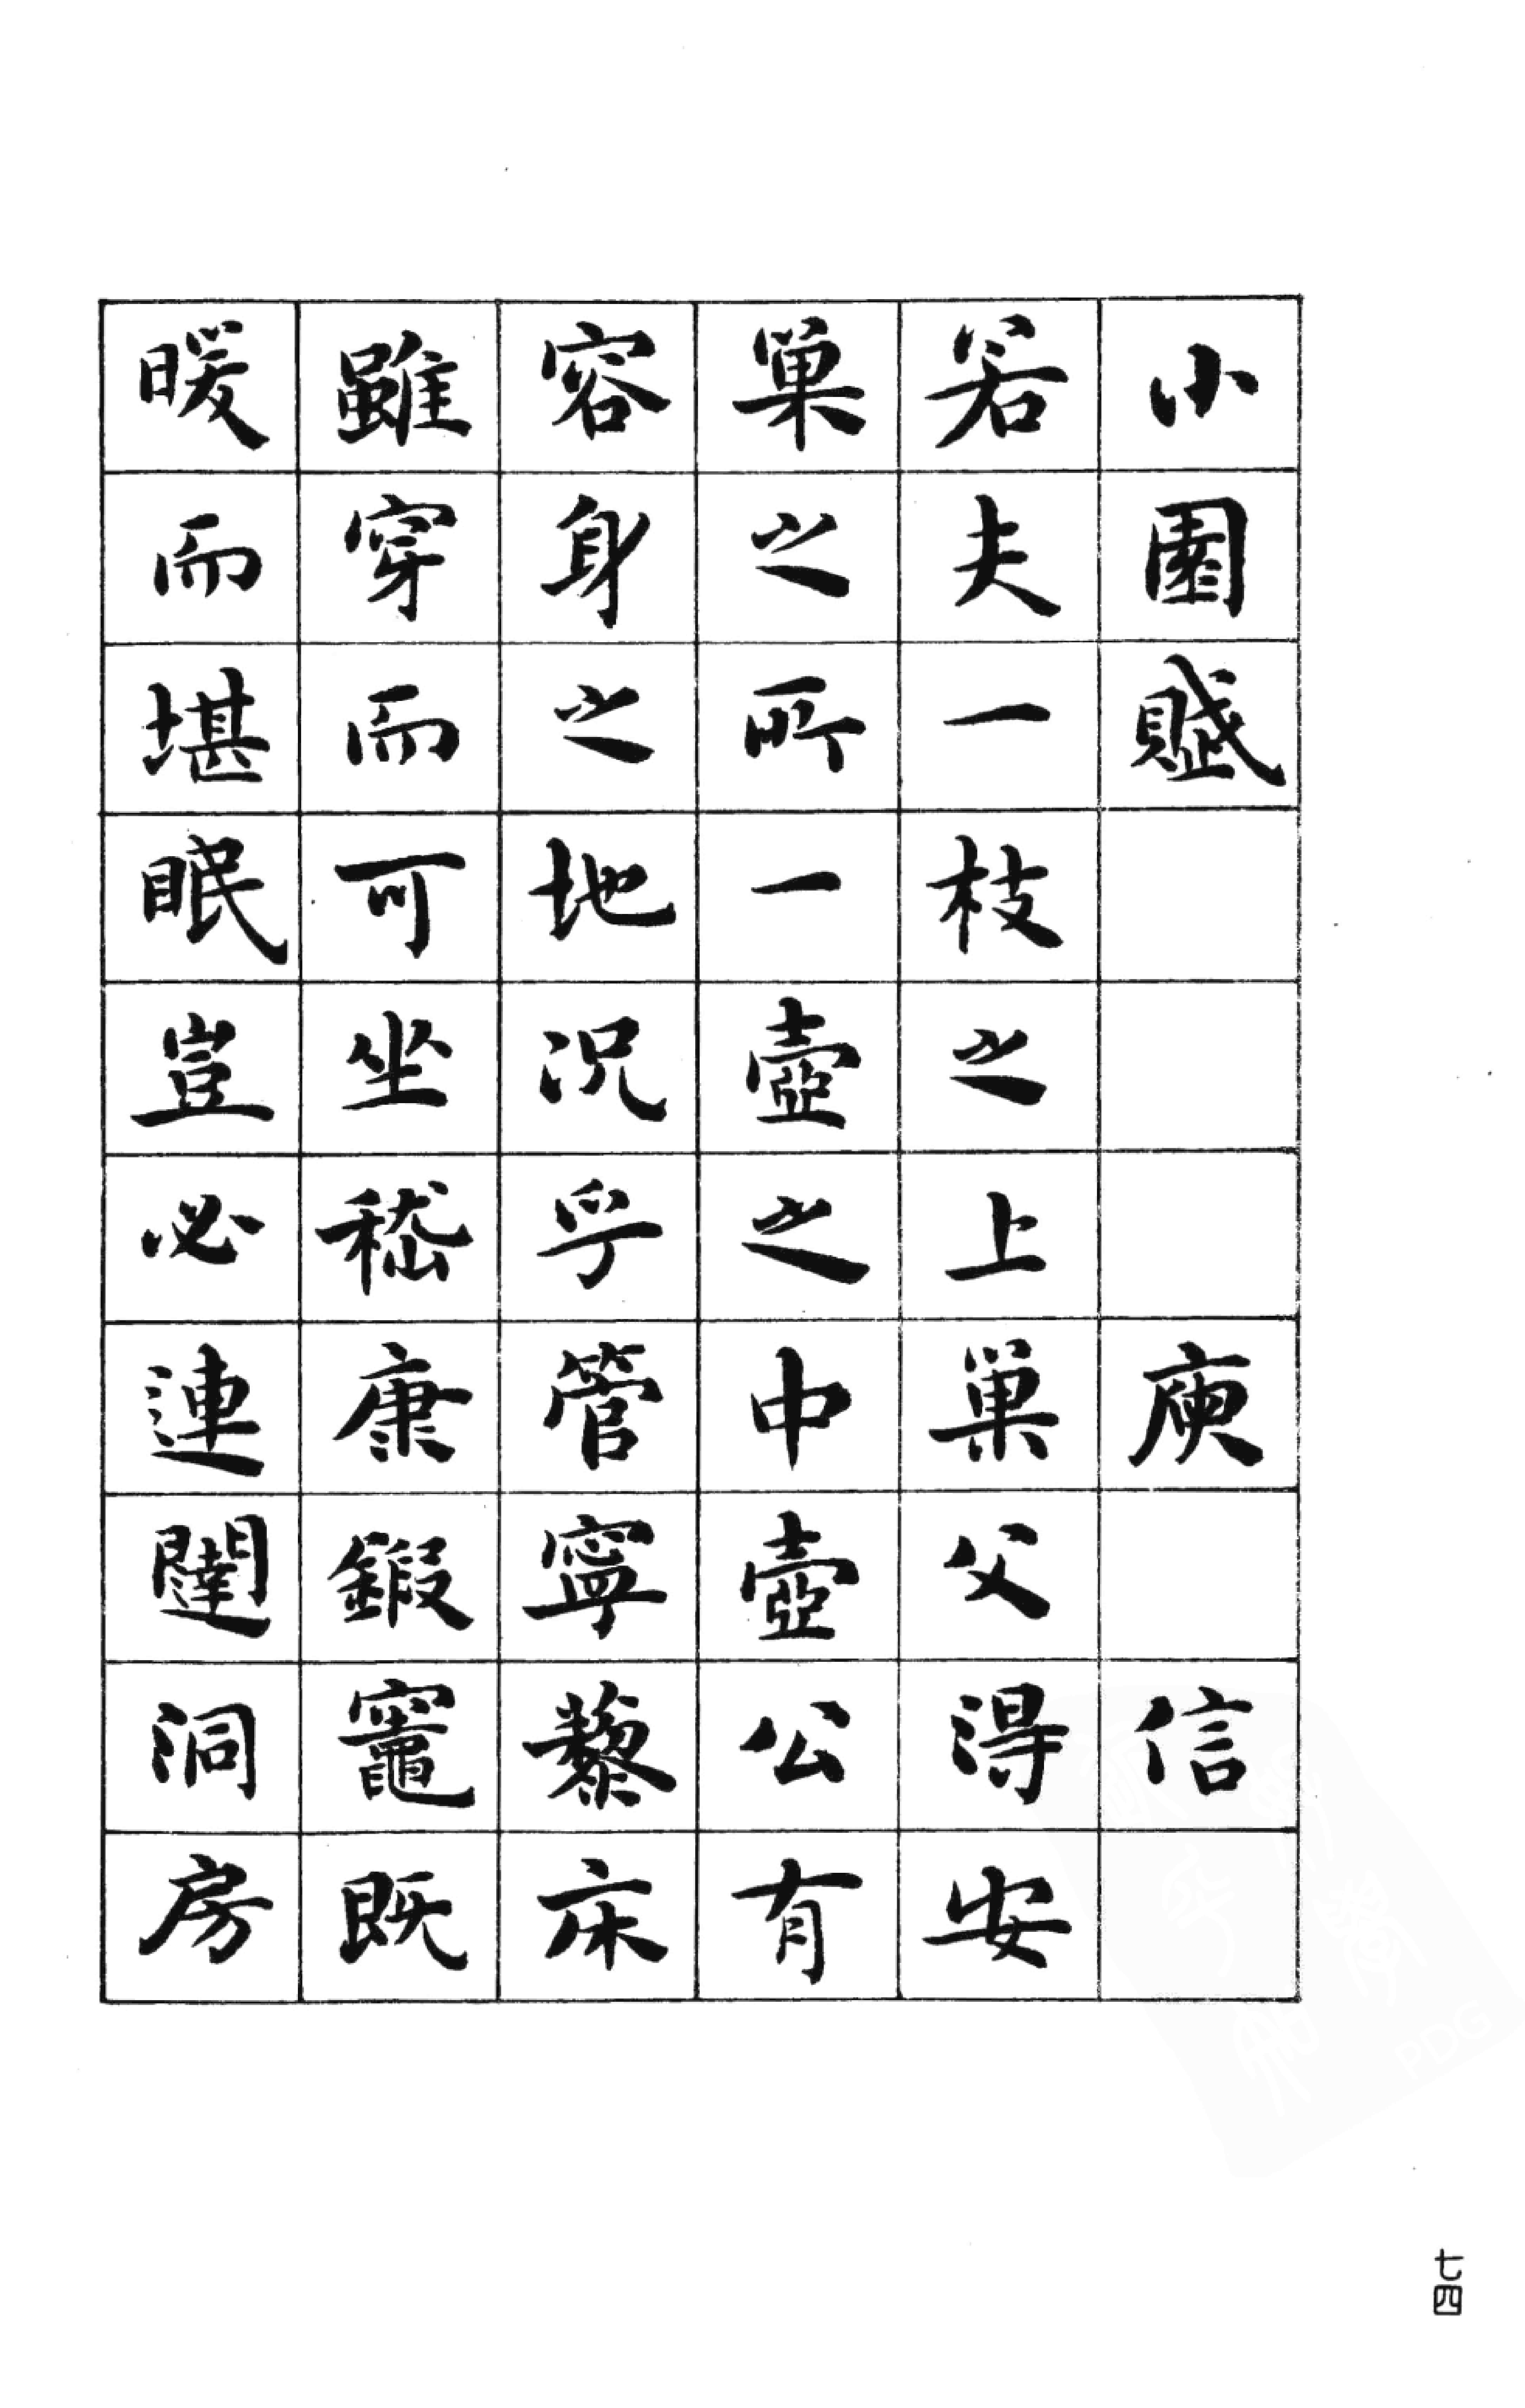 小園賦 庾 信
若夫一枝之上巢父得安
巢之所一壺之中壺公有
容身之地況乎管寧藜床
雖穿而可坐嵇康鍛竈既
暖而堪眠豈必連闥洞房
七四